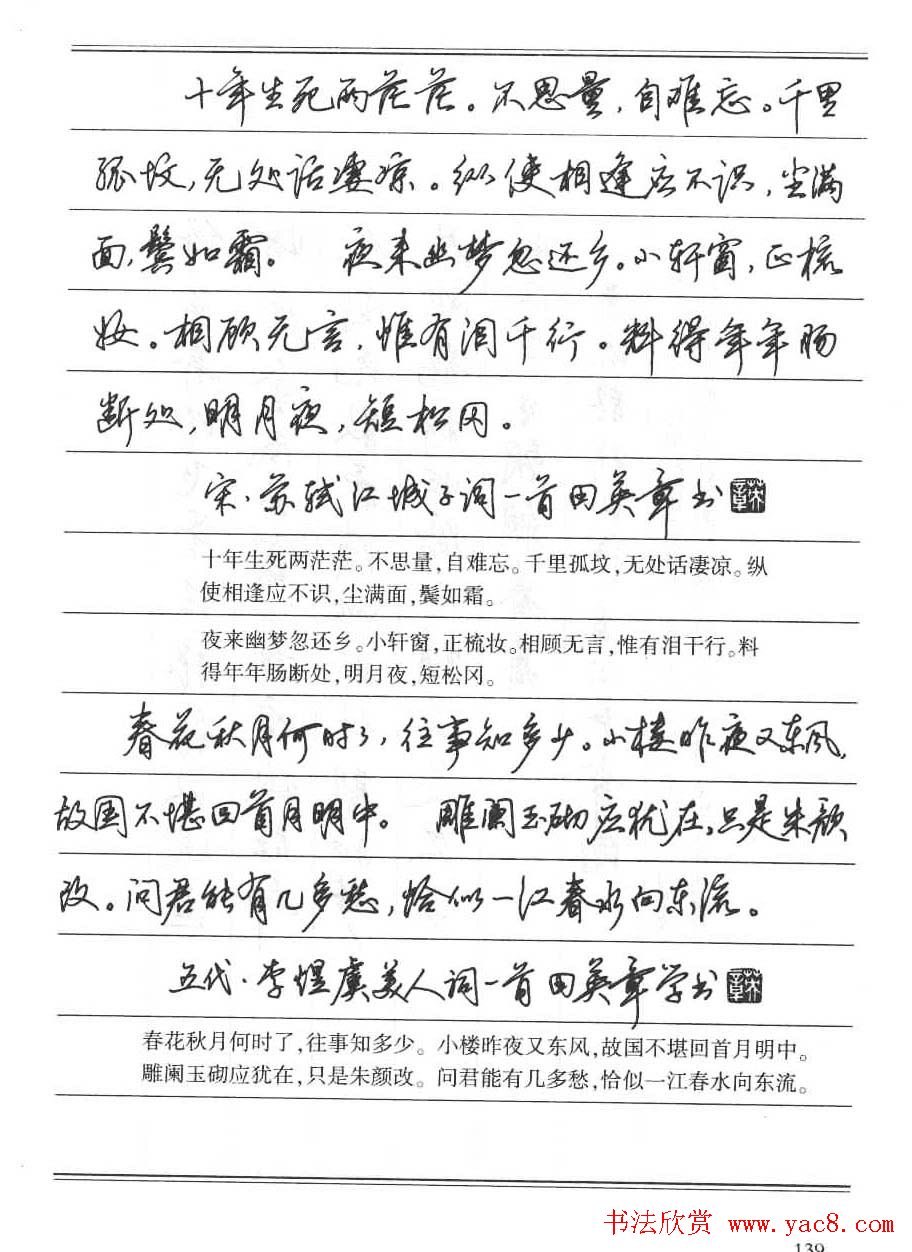 十年生死两茫茫。不思量，自难忘。千里
孤坟，无处话凄凉。纵使相逢应不识，尘满
面，鬓如霜。 夜来幽梦忽还乡。小轩窗，正梳
妆。相顾无言，惟有泪千行。料得年年肠
断处，明月夜，短松冈。
宋·苏轼江城子词一首田英章书
十年生死两茫茫。不思量，自难忘。千里孤坟，无处话凄凉。纵
使相逢应不识，尘满面，鬓如霜。
夜来幽梦忽还乡。小轩窗，正梳妆。相顾无言，惟有泪千行。料
得年年肠断处，明月夜，短松冈。
春花秋月何时了，往事知多少。小楼昨夜又东风，
故国不堪回首月明中。 雕阑玉砌应犹在，只是朱颜
改。问君能有几多愁，恰似一江春水向东流。
五代·李煜虞美人词一首田英章学书
春花秋月何时了，往事知多少。小楼昨夜又东风，故国不堪回首月明中。
雕阑玉砌应犹在，只是朱颜改。问君能有几多愁，恰似一江春水向东流。
书法欣赏 www.yac8.com
139